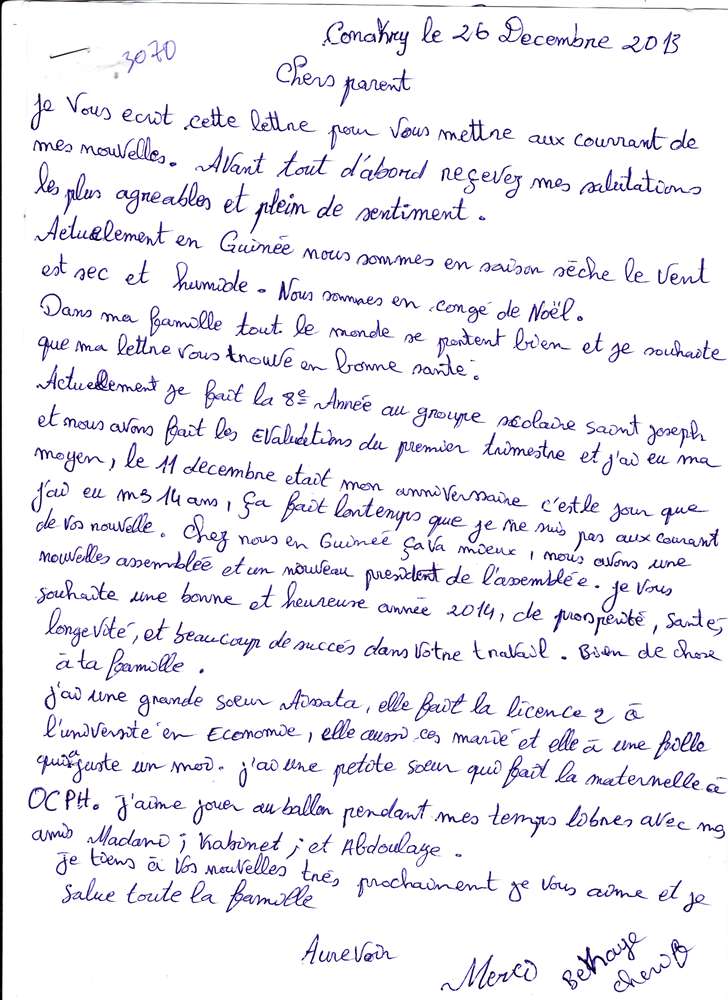 Conakry le 26 Decembre 2013
3070
Chers parent
Je Vous ecrit cette lettre pour Vous mettre aux courrant de
mes nouvelles. Avant tout d'abord reçevez mes salutations
les plus agreables et plein de sentiment.
Actuelement en Guinée nous sommes en saison sèche le Vent
est sec et humide. Nous sommes en congé de Noël.
Dans ma famille tout le monde se portent bien et je souhaite
que ma lettre Vous trouve en bonne santé.
Actuellement je fait la 8e Année au groupe scolaire saint joseph
et nous avons fait les Evaluations du premier trimestre et j'ai eu ma
moyen, le 11 decembre etait mon anniversaire c'est le jour que
j'ai eu mes 14 ans, ça fait lontemps que je ne suis pas aux courant
de Vos nouvelle. Chez nous en Guinée ça Va mieux, nous avons une
nouvelles assemblée et un nouveau president de l'assemblée. je Vous
souhaite une bonne et heureuse année 2014, de prosperité, santé,
longeVité, et beaucoup de succés dans Votre travail. Bien de chose
à ta famille.
j'ai une grande soeur Aissata, elle fait la licence 2 à
l'université en Economie, elle aussi ces marié et elle à une fille
qui a juste un moi. j'ai une petite soeur qui fait la maternelle à
OCPH. J'aime jouer au ballon pendant mes temps libres avec mes
amis Madani; Kabinet; et Abdoulaye.
Je tiens à Vos nouvelles trés prochaiment je Vous aime et je
salue toute la famille
Aurevoir
Merci